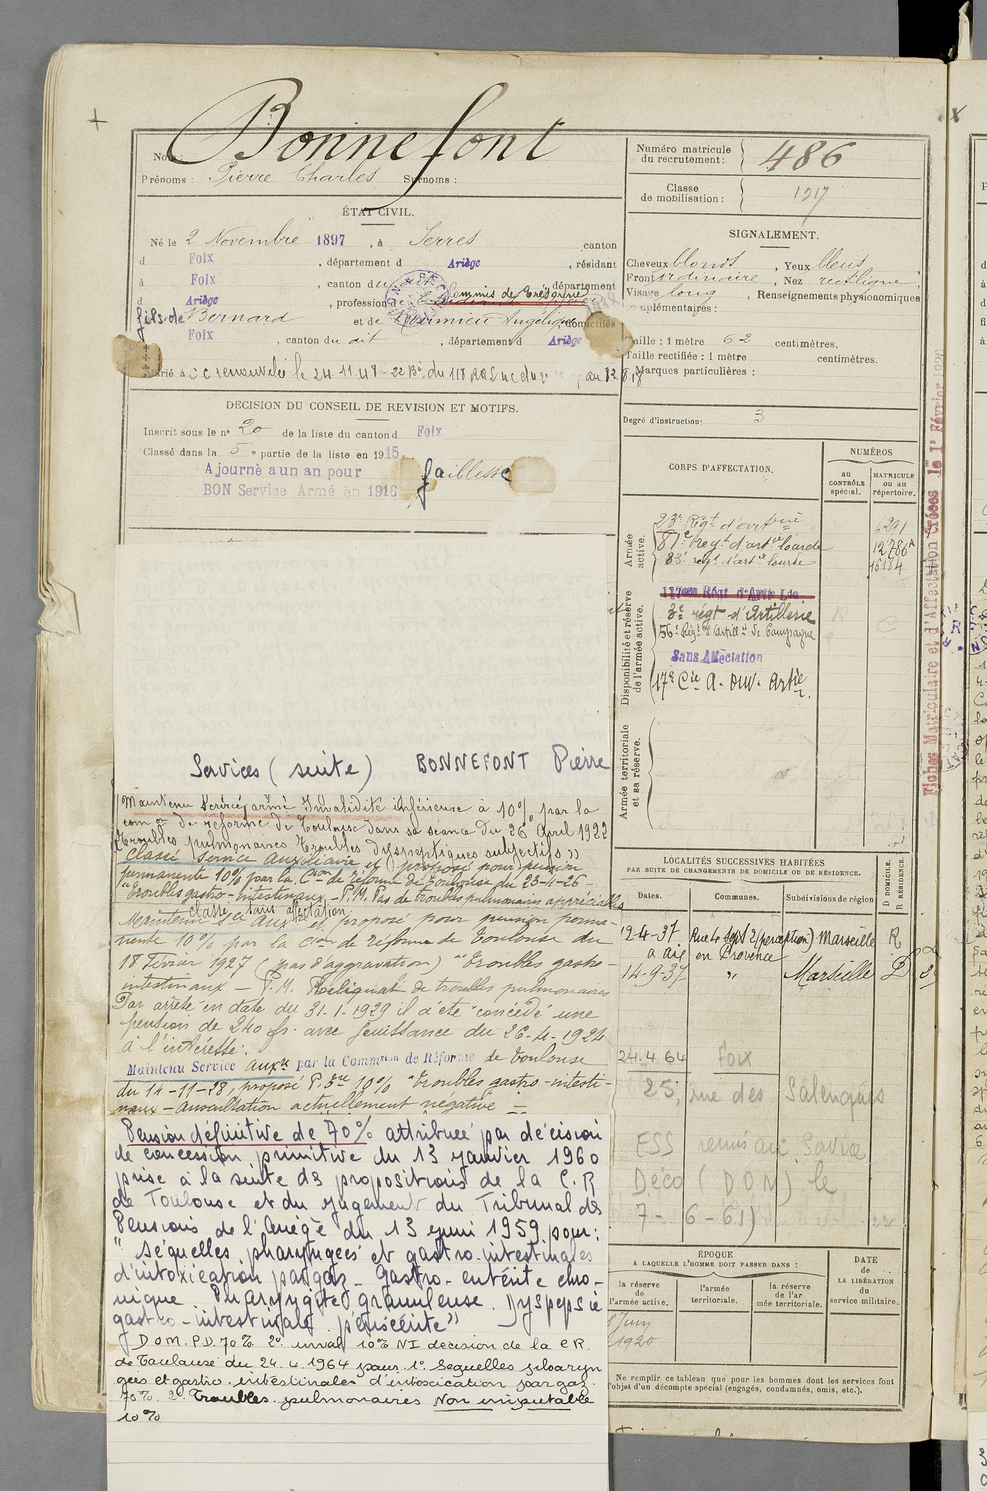 Bonnefont
Nom :
Prénoms : Pierre Charles Surnoms :
ÉTAT CIVIL.
Né le 2 Novembre 1897, à Serres canton
d Foix, département d Ariège, résidant
à Foix, canton du dit département
d Ariège, profession de Commis de Trésorerie
fils de Bernard et de Angélique domiciliés
Foix, canton du dit, département d Ariège
Marié à
DECISION DU CONSEIL DE REVISION ET MOTIFS.
Inscrit sous le n° 20 de la liste du canton d Foix
Classé dans la 5e partie de la liste en 1915
Ajourné a un an pour faiblesse
BON Service Armé en 1916
Services (suite) BONNEFONT Pierre
Maintenu Service armé Invalidité inférieure à 10% par la
com on de réforme de Toulouse dans sa séance du 26 April 1922
(Troubles pulmonaires Troubles dyspeptiques subjectifs »
Classé Service Auxiliaire et proposé pour pension
permanente 10% par la Con de réforme de Toulouse du 23-4-26
"Troubles gastro-intestinaux - P.M. Pas de troubles pulmonaires appréciables
classé sans affectation
Maintenu Sce Auxre et proposé pour pension perma-
nente 10% par la Con de réforme de Toulouse du
18 Février 1927 (pas d'aggravation) "Troubles gastro-
intestinaux - P.M. Reliquat de troubles pulmonaires
Par arrêté en date du 31-1-1929 il a été concédé une
pension de 240 fs. avec jouissance du 26-4-1924
à l'intéressé.
Maintenu Service auxre par la Commsion de Réforme de Toulouse
du 14-11-28, proposé P. 10% "Troubles gastro-intesti-
naux - Auscultation actuellement négative
Pension définitive de 70% attribuée par décision
de concession primitive du 13 Janvier 1960
prise à la suite des propositions de la C.R
de Toulouse et du jugement du Tribunal des
Pensions de l'Ariège du 13 juin 1959 pour :
" Séquelles pharyngées et gastro-intestinales
d'intoxication par gaz - Gastro-entérite chro-
nique. Pharyngite granuleuse. Dyspepsie
gastro-intestinale persistente"
D.O.M. P.D. 70% 2° inval 10% NI décision de la C.R.
de Toulouse du 24.4.1964 pour 1° Sequelles pharyn
gées et gastro-intestinales d'intoxication par gaz
70% 2° Troubles pulmonaires Non imputable
10%
Numéro matricule du recrutement : 486
Classe de mobilisation : 1917
SIGNALEMENT.
Cheveux blonds, Yeux bleus
Front ordinaire, Nez rectiligne
Visage long, Renseignements physionomiques
complémentaires :
Taille : 1 mètre 62 centimètres.
Taille rectifiée : 1 mètre centimètres.
Marques particulières :
Degré d'instruction : 3
CORPS D'AFFECTATION.
NUMÉROS
au CONTRÔLE spécial.
MATRICULE ou au répertoire.
Armée active.
23e Régt d'artrie 6291
81e Régt d'artie lourde 12786
83e régt d'artie lourde 15184
Disponibilité et réserve de l'armée active.
117eme Régt d'Artie Lde
3e régt d'Artillerie
56e Régt d'Artillie de Campagne
Sans Affectation
17e Cie A. Ouv. Artie
Armée territoriale et sa réserve.
LOCALITÉS SUCCESSIVES HABITÉES
PAR SUITE DE CHANGEMENTS DE DOMICILE OU DE RÉSIDENCE.
Dates. Communes. Subdivisions de région
D DOMICILE. R RÉSIDENCE.
12-4-37 Rue 4 Sept 2 (perception) Marseille R
à Aix en Provence
14-9-37 " Marseille D
24.4.64 Foix
25, rue des Salenques
ESS remis au
Déco (DOM) le
7-6-61)
ÉPOQUE
A LAQUELLE L'HOMME DOIT PASSER DANS :
la réserve de l'armée active.
l'armée territoriale.
la réserve de l'armée territoriale.
DATE de LA LIBÉRATION du service militaire.
Juin
1920
Ne remplir ce tableau que pour les hommes dont les services font
l'objet d'un décompte spécial (engagés, condamnés, omis, etc.).
Fiches Matriculaire et d'Affectation créées le 1r Février 1920